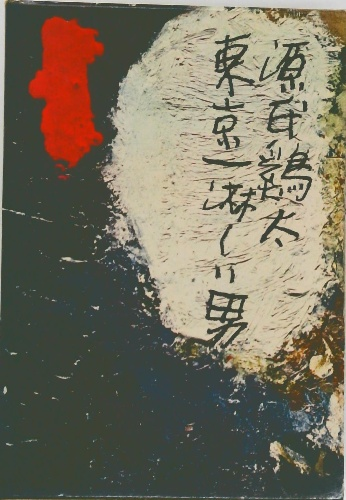 源氏鶏太
東京一淋しい男